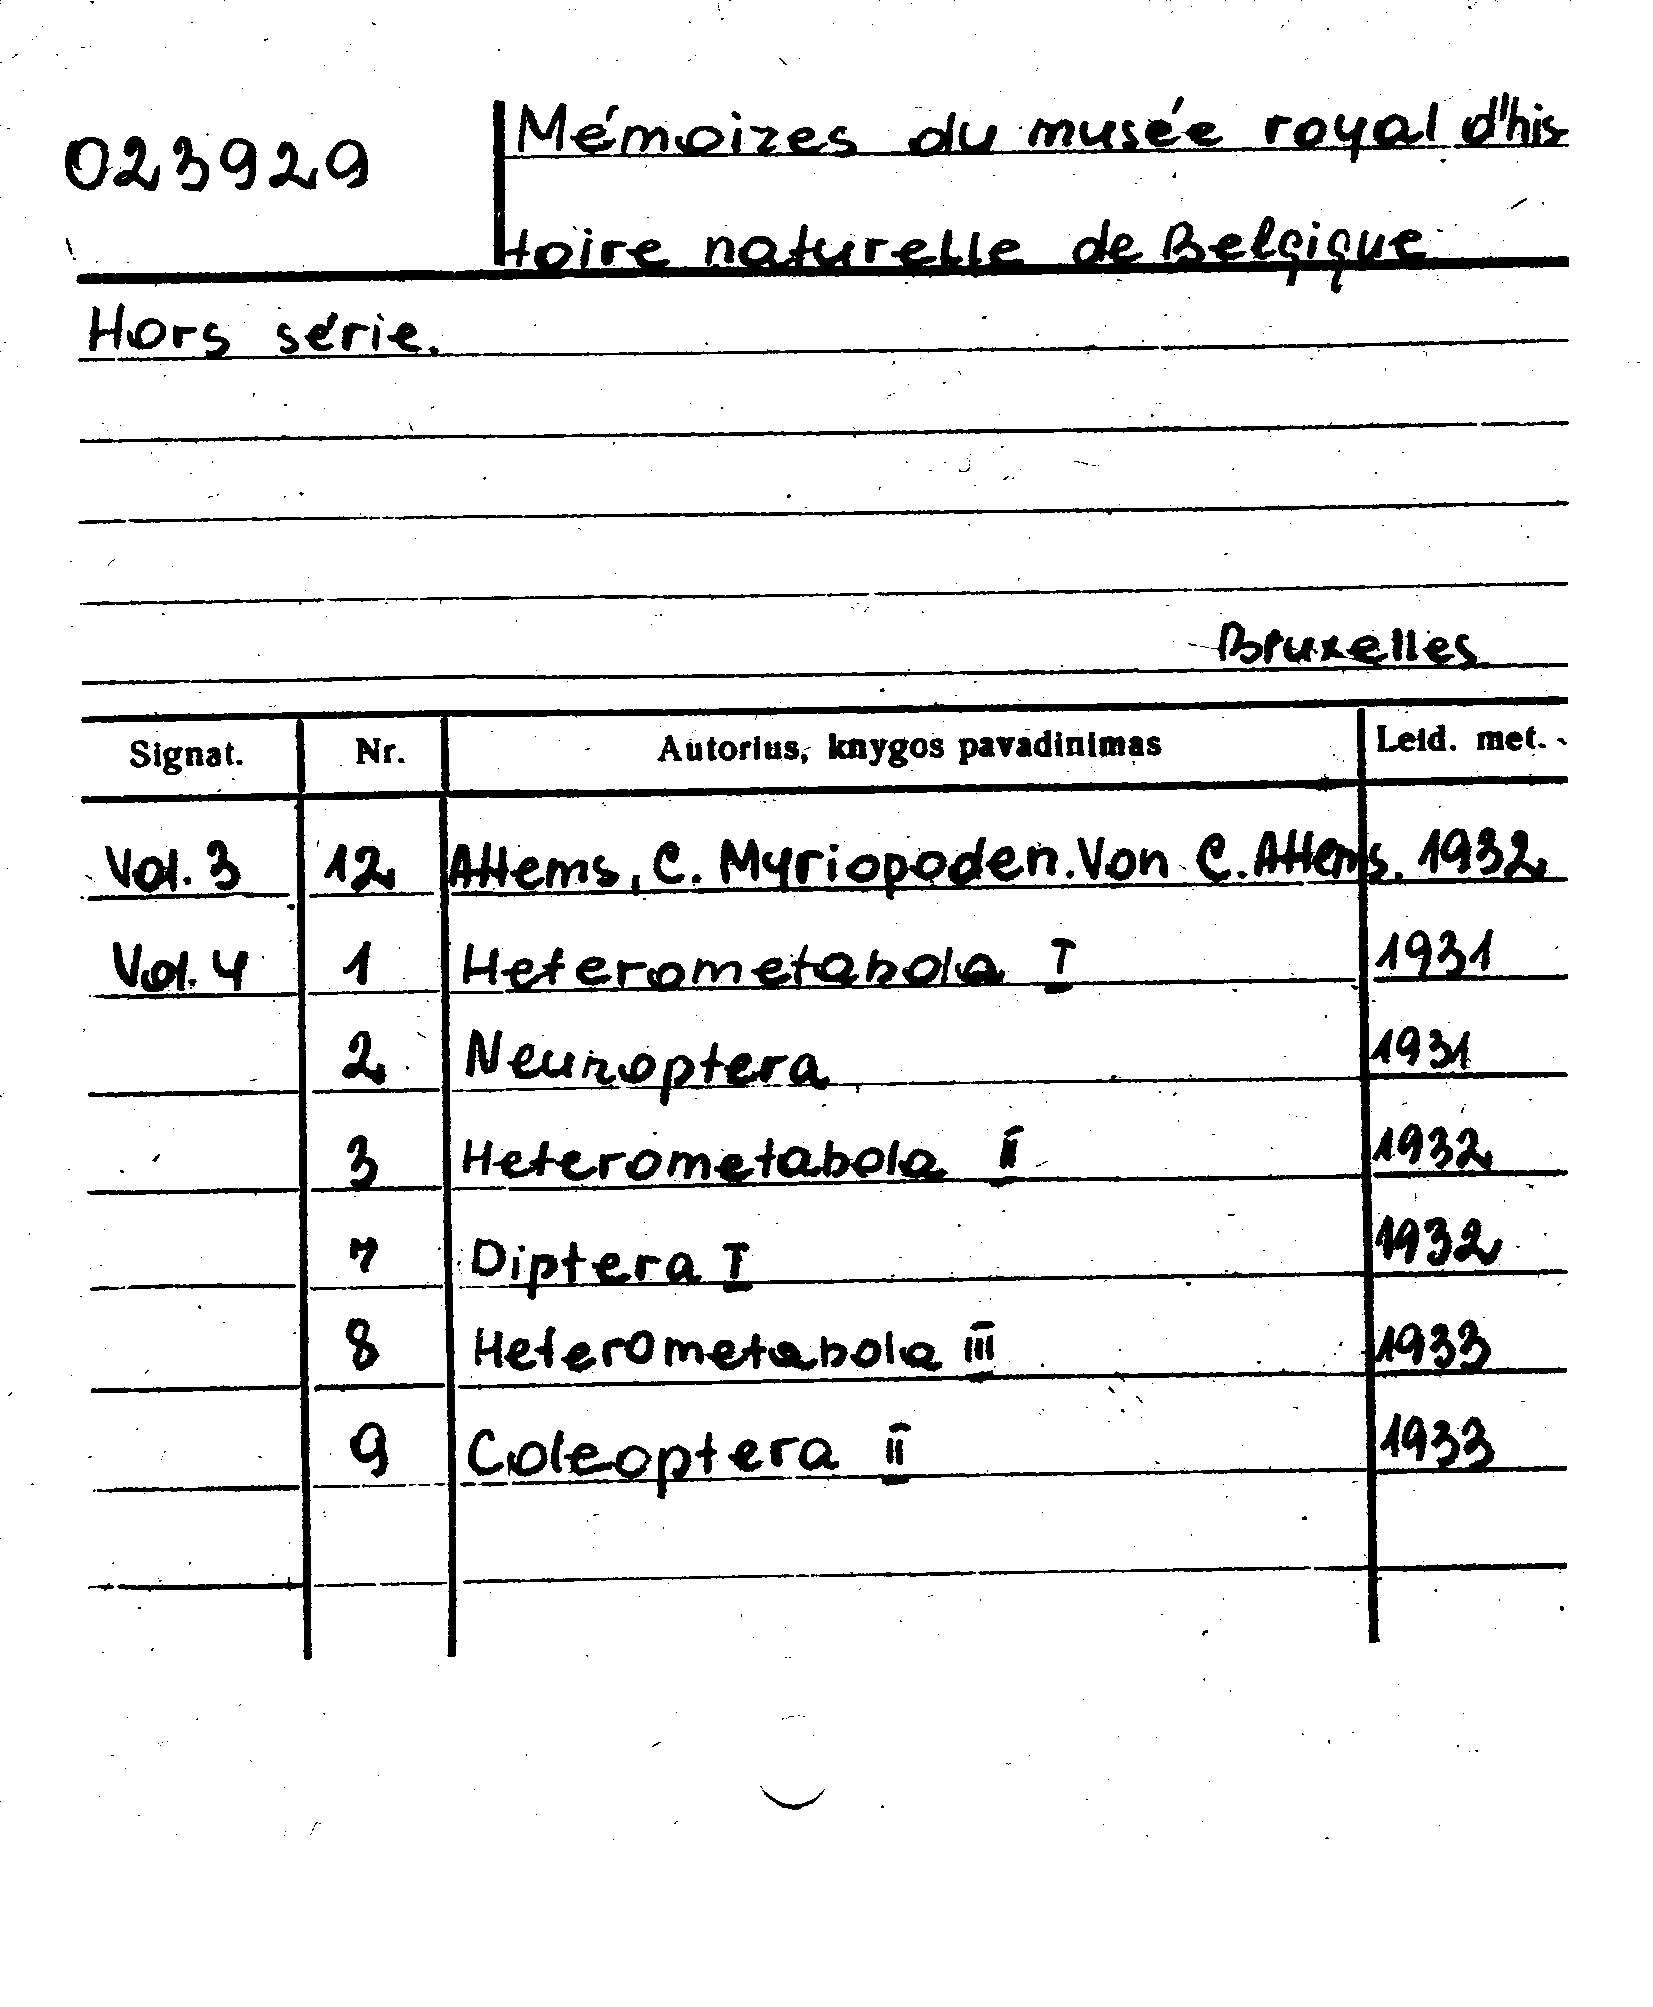 023929
Mémoires du musée royal d'his
toire naturelle de Belgique
Hors série.
Bruxelles
Signat. Nr. Autorius, knygos pavadinimas Leid. met.
Vol. 3 12 Attems, C. Myriopoden. Von C. Attems. 1932
Vol. 4 1 Heterometabola I 1931
2 Neuroptera 1931
3 Heterometabola II 1932
7 Diptera I 1932
8 Heterometabola III 1933
9 Coleoptera II 1933